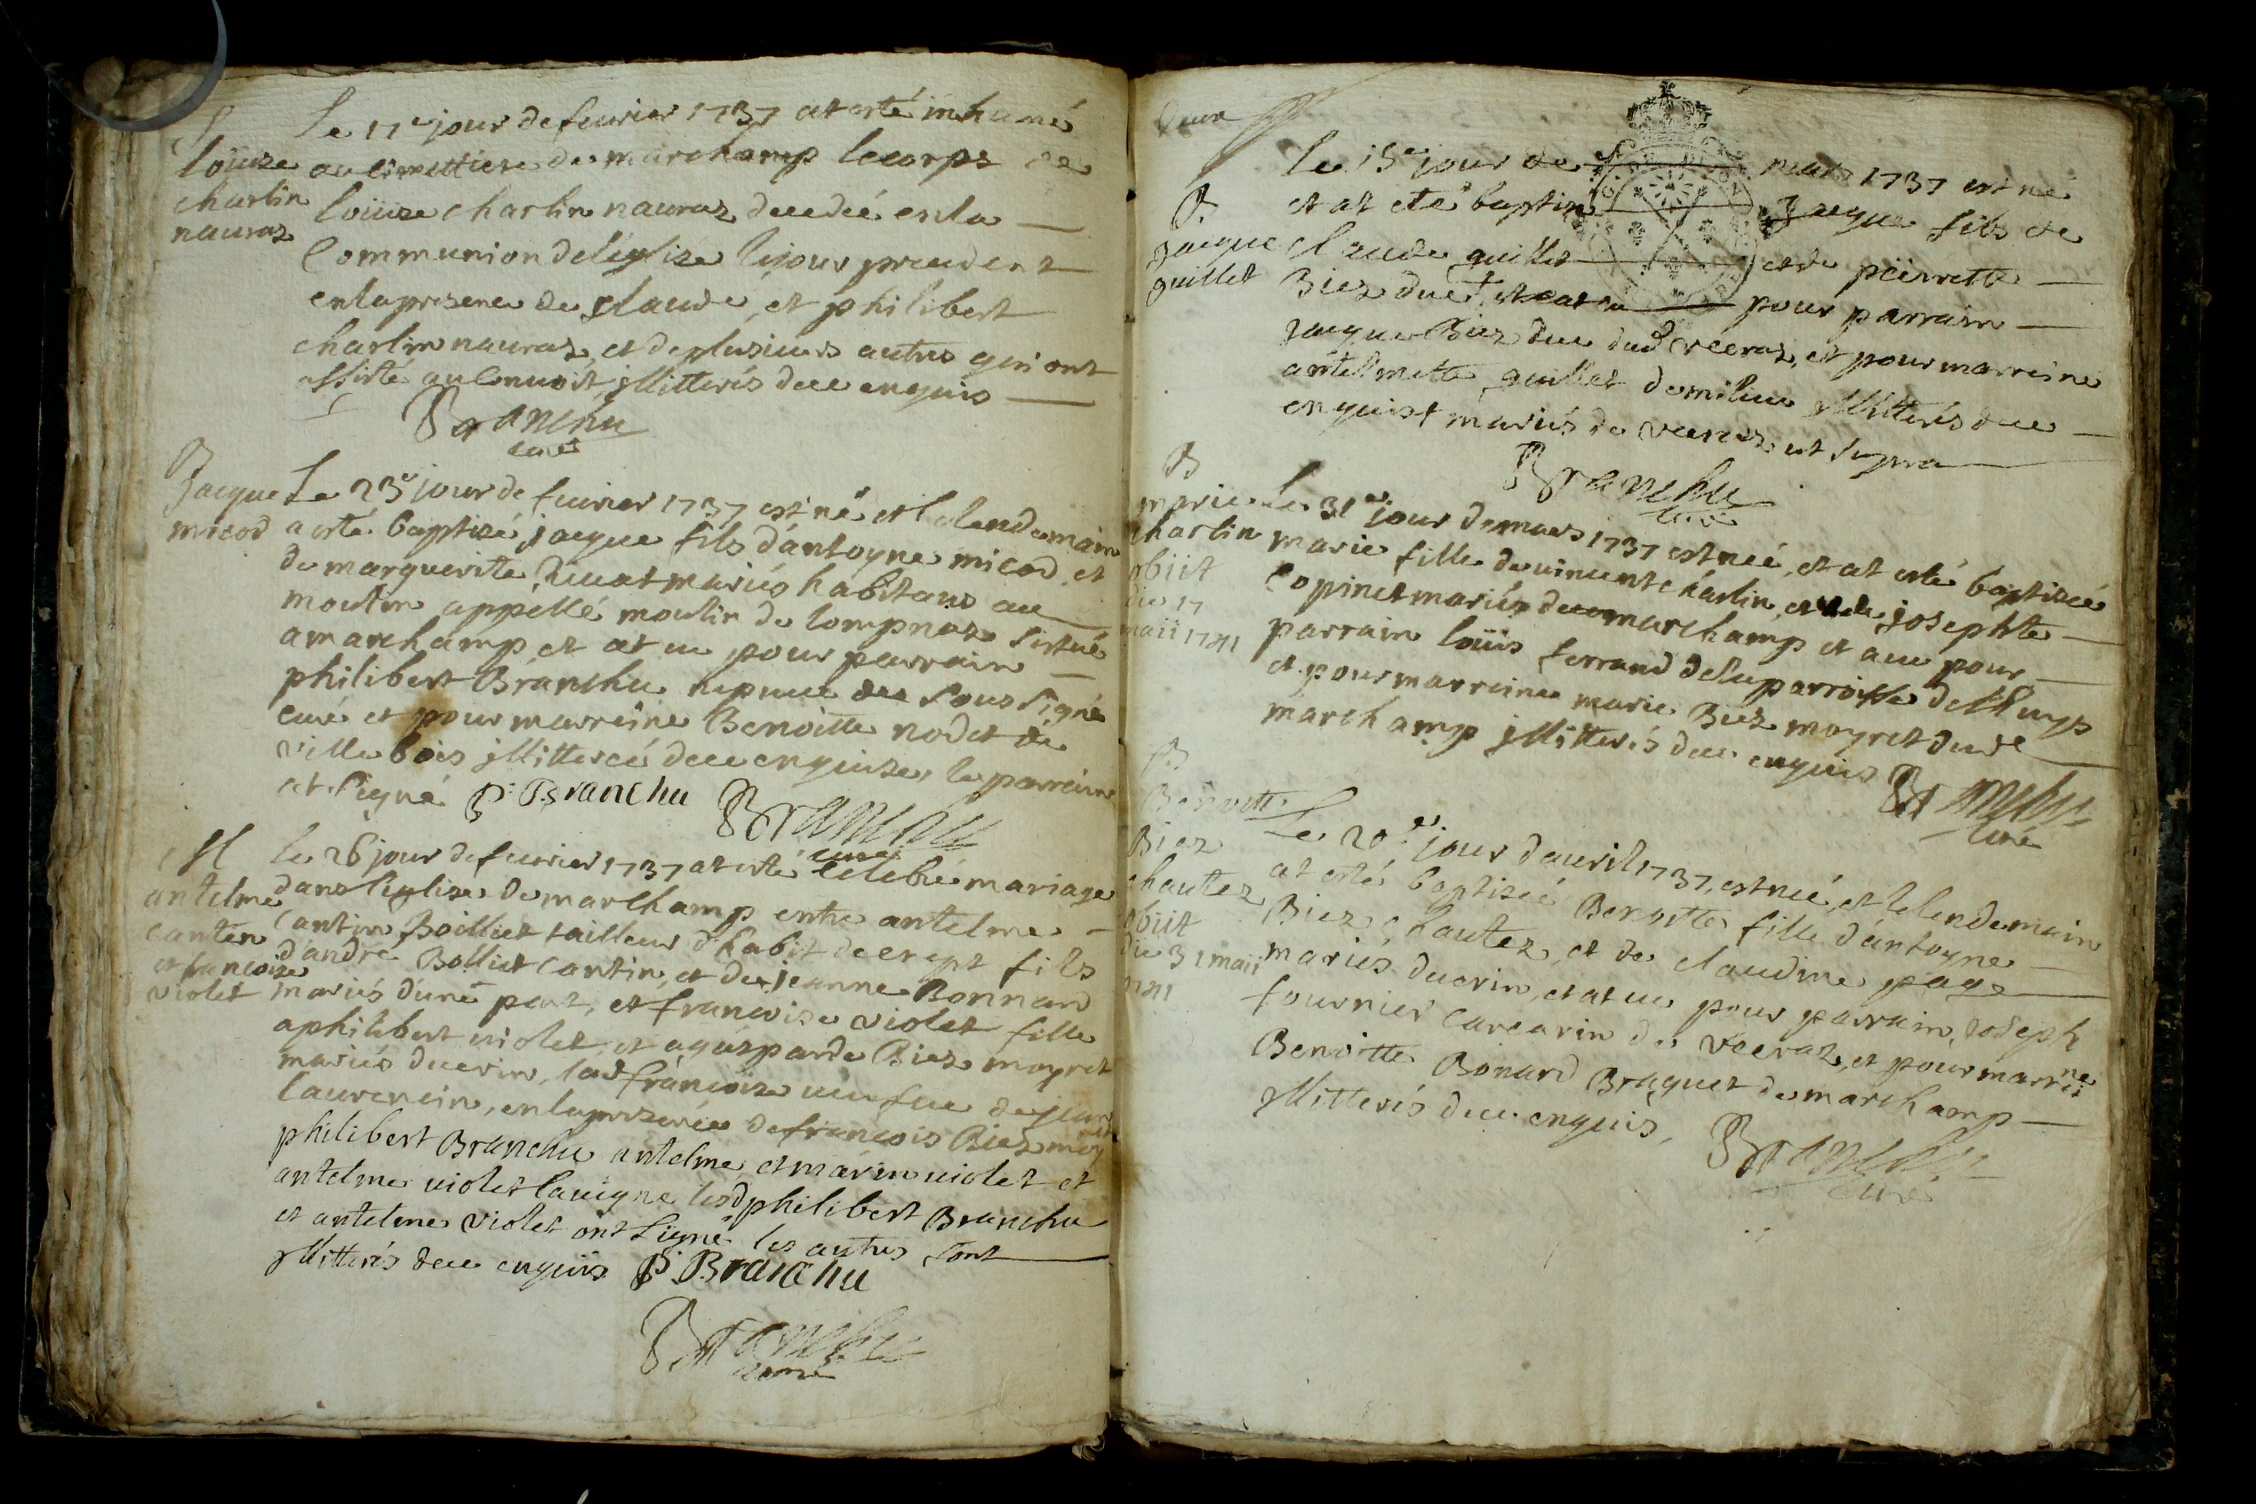 S
Loüize
charlin
nauraz
Le 17e jour de feurier 1737 at esté inhumé
au cimettiere de marchamp le corps de
Loüize charlin nauraz decedeé en la
Communion de leglize le jour precedent
en la presence de claude, et philibert
charlin nauraz, et de plusieurs autres qui ont
assisté au Conuoit, jllitterés de ce enquis
Branchu
curé
B
Jacque
micod
Le 23e jour de feurier 1737 est né et le lendemain
a esté baptizé, jacque fils d'antoyne micod, et
de marguerite Ducat mariés habitans au
moulin appellé moulin de lompnaz situé
a marchamp et at eu pour parrain
philibert Branchu nepueu du sous signé
curé et pour marreine Benoitte nodet de
ville bois jllitereé de ce enquize, le parrain
at signé P. Branchu
Branchu
curé
M
antelme
cantin
et francoise
violet
le 26 jour de feurier 1737 at esté celebré mariage
dans l'eglize de marchamp entre antelme
Cantin Bolliet tailleur d'habit de crept fils
d'andré Bolliet cantin, et de jeanne Bonnard
mariés d'une part, et francoise violet fille
a philibert violet, et a gasparde Biez moyret
mariés ducrin, lad francoise ueufue de jean
laurencin, en la presence de francois Biez moyret
philibert Branchu antelme et marin uiolet et
antelme uiolet lauigne lesd philibert Branchu
et antelme violet ont signé les autres sont
jllitterés de ce enquis P. Branchu
Branchu
curé
Deux
B
Jacque
guillet
le 15e jour de mars 1737 est né
et at eté baptizé Jacque fils de
claude guillet et de pierrette
Biez duc †, et at eu pour parrain
jacque Biez duc dud veeraz, et pour marreine
antelmette guillet de milieu jllitterés de ce
enquis † mariés de veeraz ut supra
Branchu
curé
B
marie
charlin
obiit
die 17
maii 1741
Le 31e jour de mars 1737 est neé, et at esté baptizeé
marie fille de uincent charlin, et de josephte
Copinet mariés de marchamp et a eu pour
parrain loüis ferrand de la parroisse de
et pour marreine marie Biez moyret dud
marchamp jllitterés de ce enquis Branchu
curé
B
Benoitte
Biez
chautez
obiit
die 31 maii
1741
Le 20e jour d'auril 1737, est neé, et le lendemain
at esté baptizeé Benoitte fille d'antoyne
Biez chautez, et de claudine page
mariés ducrin, et at eu pour parrain, joseph
fournier carcarin de veeraz, et pour marreine
Benoitte Bonard Braquet de marchamp
jllitterés de ce enquis,
Branchu
curé